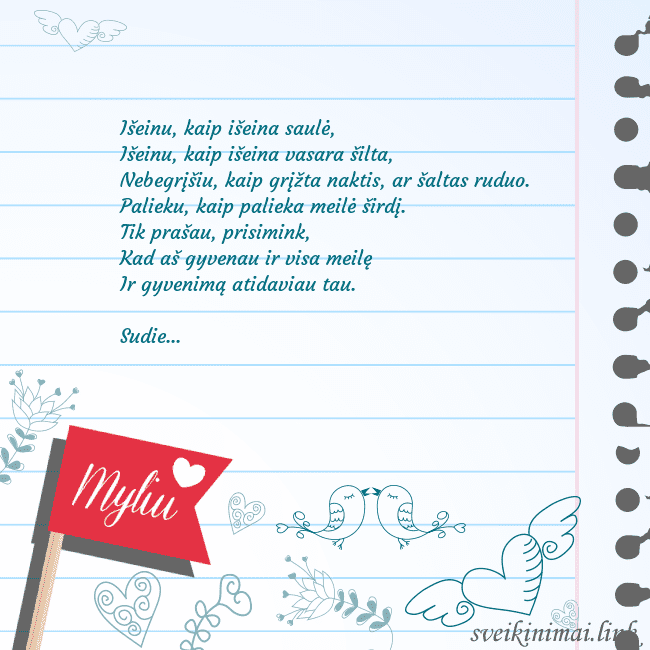 Išeinu, kaip išeina saulė,
Išeinu, kaip išeina vasara šilta,
Nebegrįšiu, kaip grįžta naktis, ar šaltas ruduo.
Palieku, kaip palieka meilė širdį.
Tik prašau, prisimink,
Kad aš gyvenau ir visa meilę
Ir gyvenimą atidaviau tau.
Sudie...
Myliu
sveikinimai.link